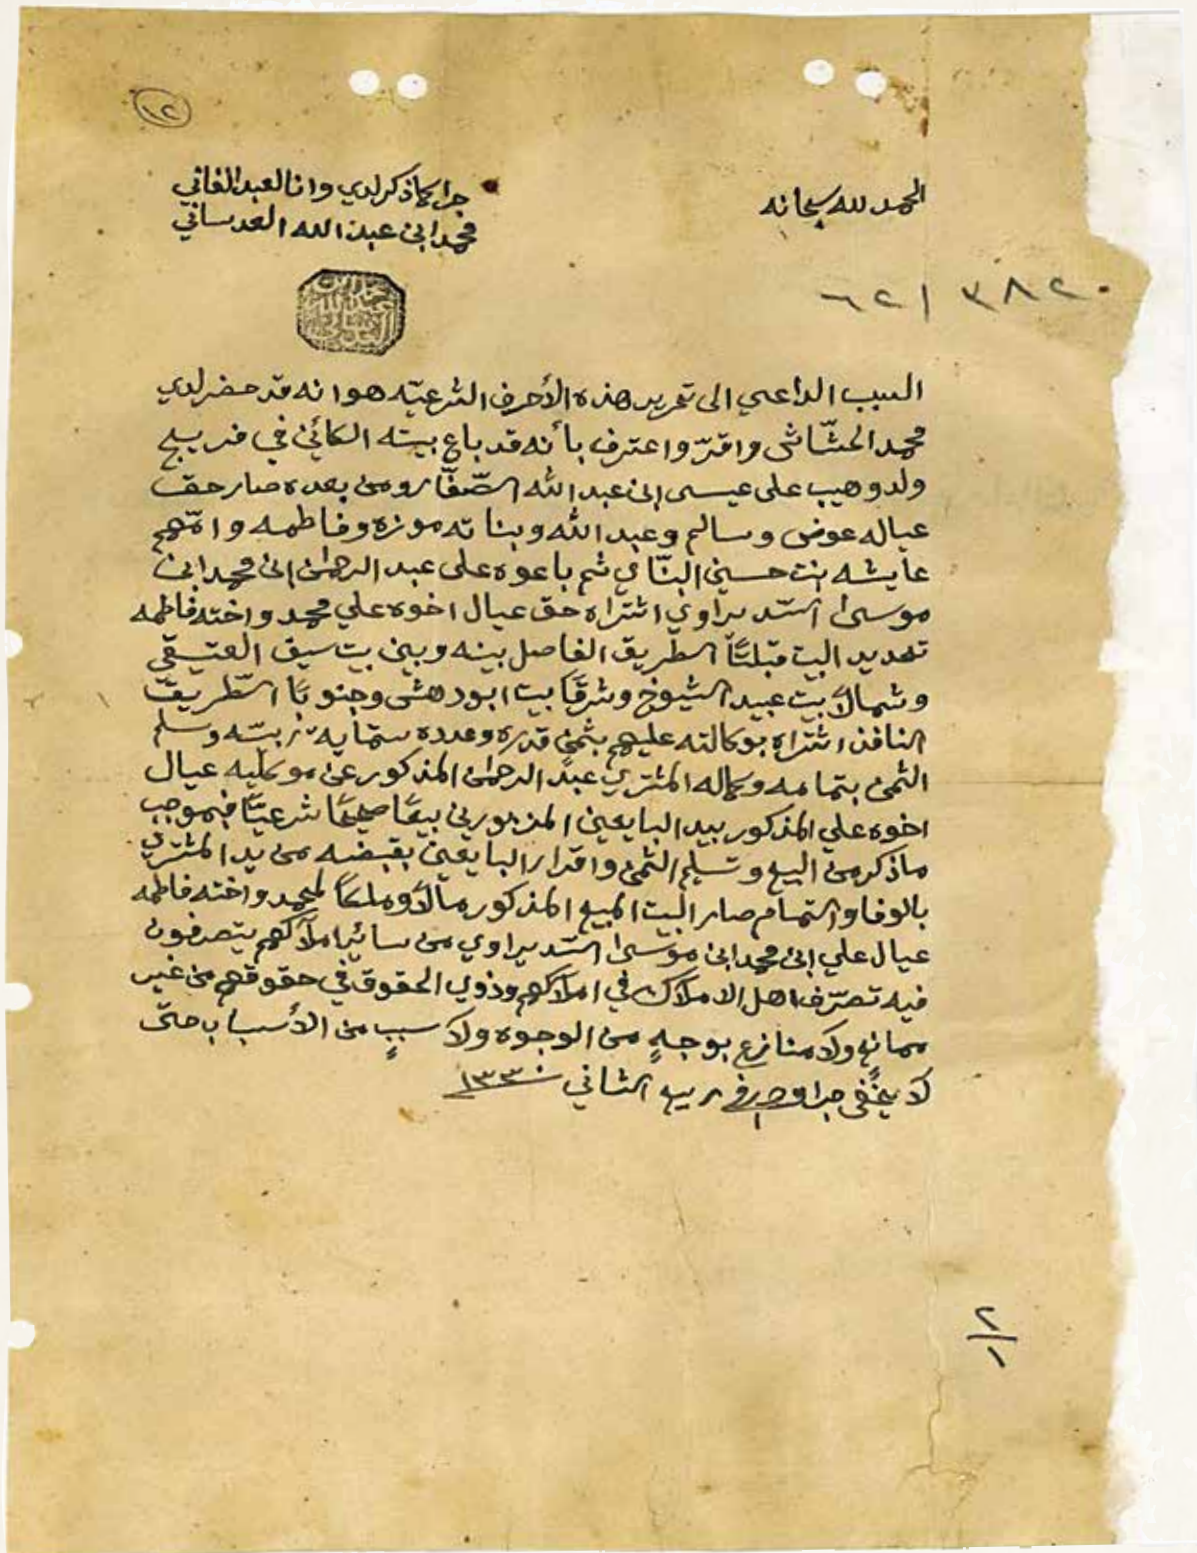 ١٢
الحمد لله سبحانه
جرا كما ذكر لدي وانا العبد الفاني
محمد ابن عبد الله العدساني
٣٨٢٠ / ٦٢
السبب الداعي الى تحرير هذه الأحرف الشرعيّه هو انه قد حضر لدي
محمد الحشّاش واقرّ واعترف بأنه قد باع بيته الكائن في فريج
ولد وهيب على عيسى ابن عبد الله الصّفّار ومن بعده صار حق
عياله عوض وسالم وعبد الله وبناته موزه وفاطمه وامّهم
عايشه بنت حسين البنّاي ثم باعوه على عبد الرحمن ابن محمد ابن
موسى السّديراوي اشتراه حق عيال اخوه علي محمد واخته فاطمه
تحديد البيت قبلتاً الطريق الفاصل بينه وبين بيت سيف العتيقي
وشمالاً بيت عبيد الشيوخ وشرقاً بيت ابودهش وجنوباً الطّريق
النافذ اشتراه بوكالته عليهم بثمن قدره وعدده ستمايه ربيّه وسلم
الثمن بتمامه وكماله المشتري عبد الرحمن المذكور عن موكليه عيال
اخوه علي المذكور بيد البايعين المزبورين بيعاً صحيحاً شرعيّاً فبموجب
ماذكر من البيع وتسليم الثمن واقرار البايعين بقبضه من يد المشتري
بالوفا والتمام صار البيت المبيع المذكور مالاً وملكاً لمحمد واخته فاطمه
عيال علي ابن محمد ابن موسى السّديراوي من سائر املاكهم يتصرفون
فيه تصرّف اهل الاملاك في املاكهم وذوي الحقوق في حقوقهم من غير
ممانعٍ ولا منازع بوجهٍ من الوجوه ولا سببٍ من الأسباب حتّى
لا يخفى جرا وحرر في ربيع الثاني ١٣٣٠
٢
١